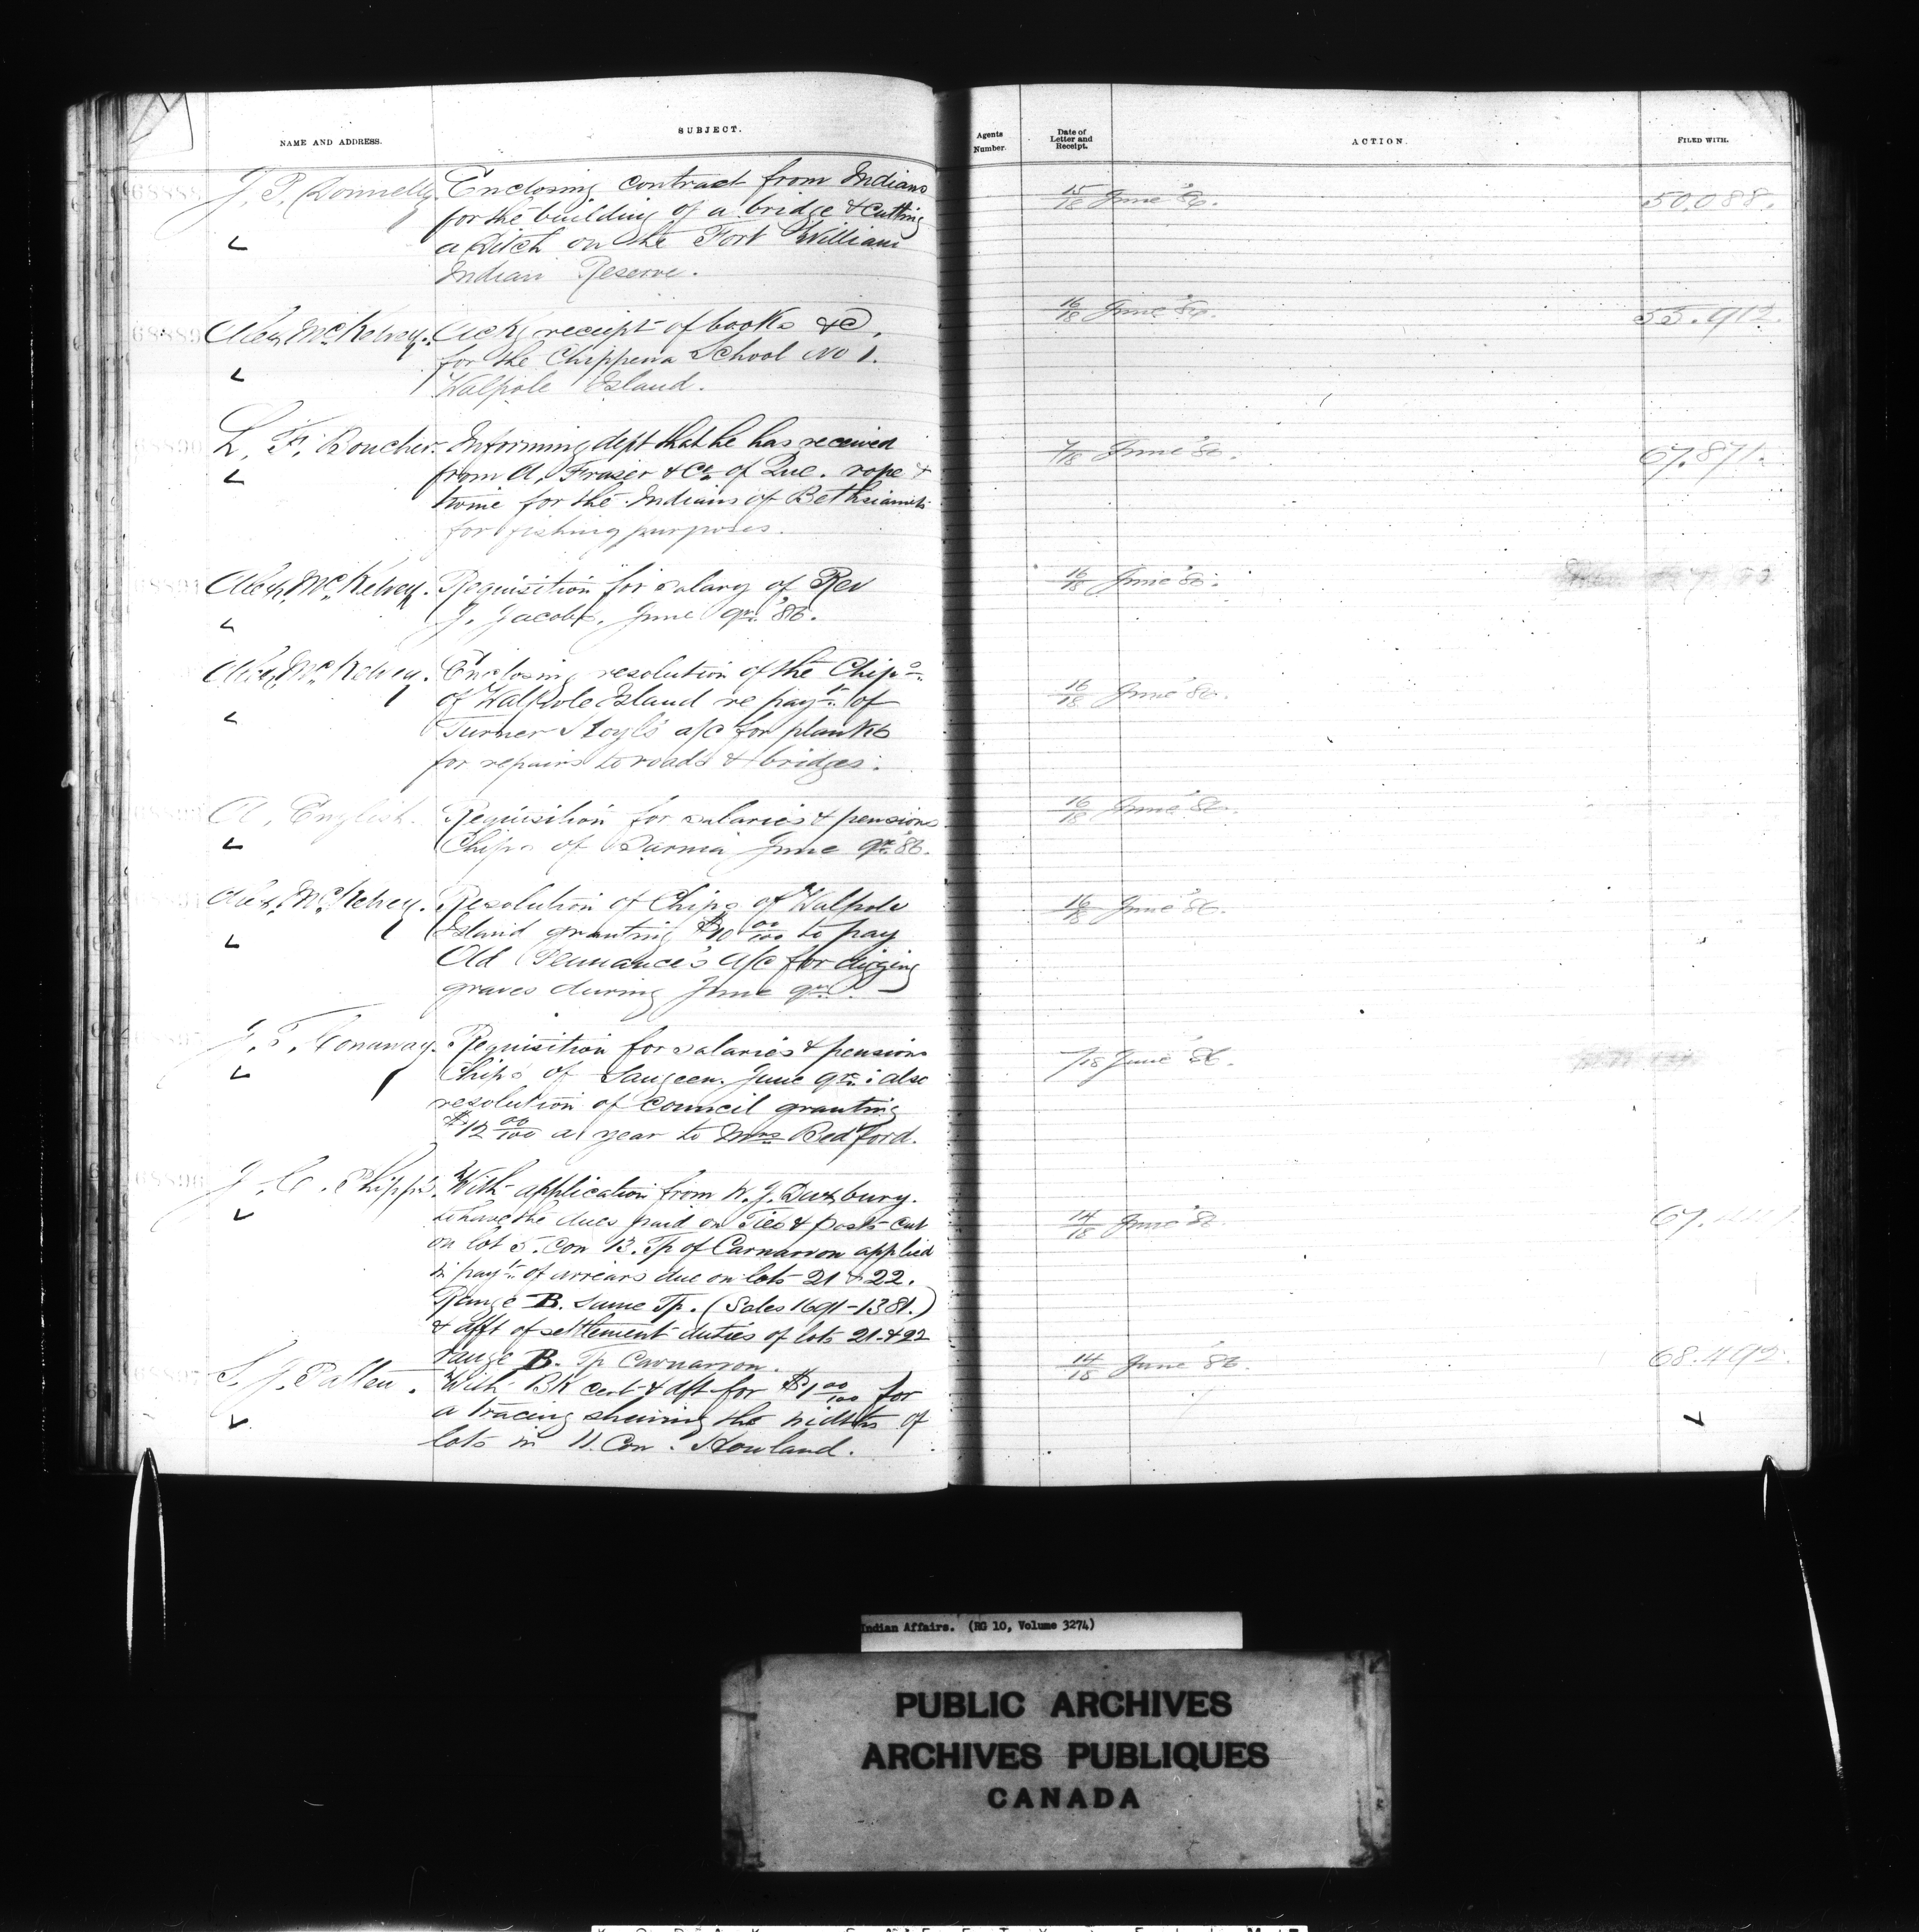 NAME AND ADDRESS.
SUBJECT.
Agents Number.
Date of Letter and Receipt.
ACTION.
FILED WITH.
68888 J. P. Donnelly. Enclosing contract from Indians 15/18 June '86. 50.088.
for the building of a bridge & cutting
a ditch on the Fort William
Indian Reserve.
68889 Alex. McKelvey. Ackg receipt of books &c, 16/18 June '86. 55.912.
for the Chippewa School No 1.
Walpole Island.
68890 L. F. Boucher. Informing dept that he has received 7/18 June '86. 67.871.
from A. Fraser & Co. of Que. rope &
twine for the Indians of Bethsiamits
for fishing purposes.
Alex. McKelvey. Requisition for salary of Rev 16/18 June '86.
J. Jacobs, June qr. '86.
Alex. McKelvey. Enclosing resolution of the Chips.
of Walpole Island re payt. of 16/18 June '86.
Turner a/c for planks
for repairs to roads & bridges.
A. English. Requisition for salaries & pensions 16/18 June '86.
Chips of Sarnia June qr. '86.
Alex. McKelvey. Resolution of Chips of Walpole 16/18 June '86.
Island granting $10 00/100 to pay
Old a/c for digging
graves during June qr.
J. T. Conaway. Requisition for salaries & pensions 7/18 June '86.
Chips of Saugeen. June qr.: also
resolution of council granting
$12 00/100 a year to Mrs Bedford.
68896 J. C. Phipps. With application from W. J. Duxbury.
to have the dues paid on Ties & posts cut 14/18 June '86.
on lot 5. Con 13. Tp of Carnarvon applied
in payt. of arrears due on lots 21 & 22.
Range B. same Tp. (Sales 1691-1381.)
& afft of settlement duties of lots 21 & 22
range B. Tp Carnarvon.
68897 S. J. Patten. With Bk cert & dft for $1 00/100 for 14/18 June '86. 68.492.
a tracing shewing the widths of
lots in 11. Con. Howland.
Indian Affairs. (RG 10, Volume 3274)
PUBLIC ARCHIVES
ARCHIVES PUBLIQUES
CANADA